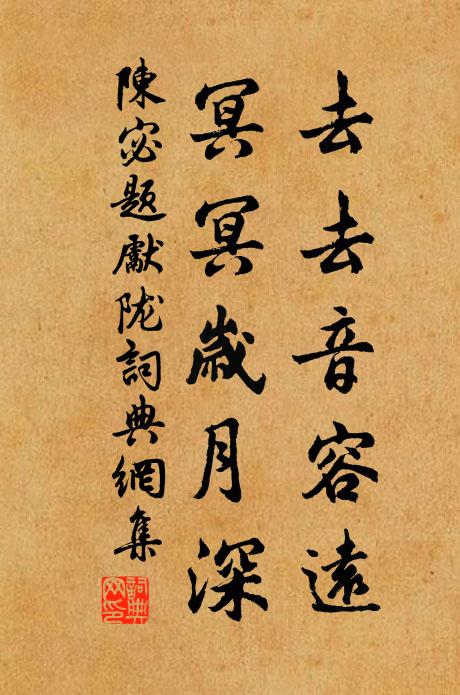 去去音容遠
冥冥歲月深
陳宓題獻陇詞典網集
詞典网印